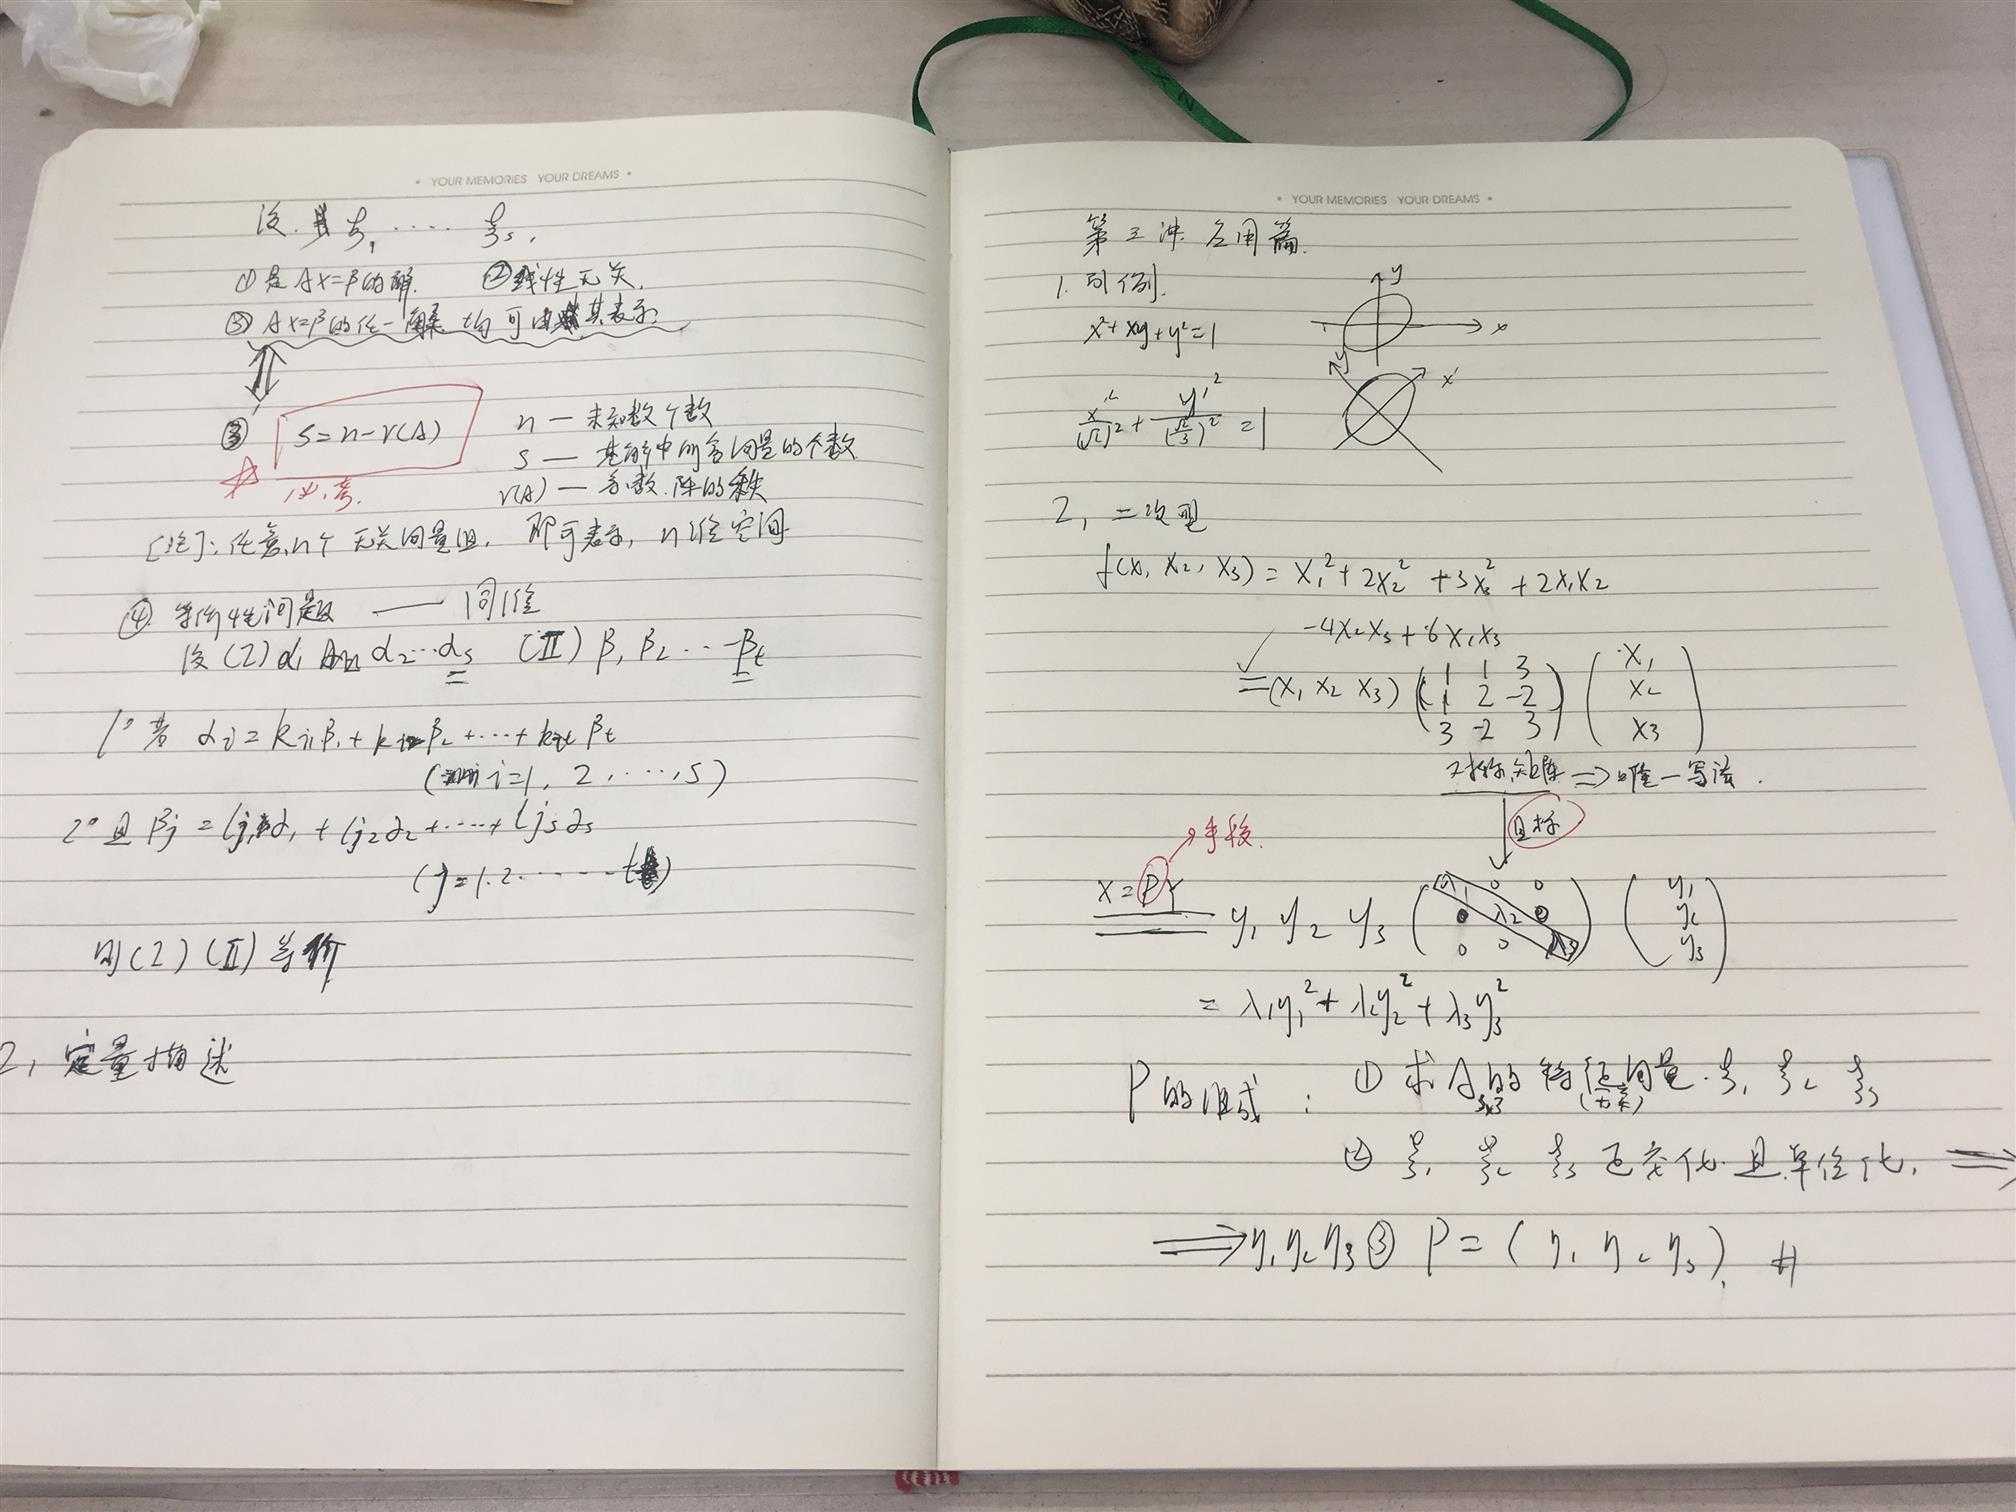 • YOUR MEMORIES YOUR DREAMS •
设 ξ₁ ····· ξₛ,
① 是 Ax=β的解. ② 线性无关.
③ Ax=β的任一解 均可由其表示.
③' s=n-r(A)
必考.
n — 未知数个数
s — 基解中所含向量的个数
r(A) — 系数阵的秩
[注]: 任意n个 无关向量组, 即可表示, n维空间
④ 等价性问题 —— 同维
设 (I) α₁ α₂···αₛ (II) β₁ β₂ ··· βₜ
1° 若 αᵢ = kᵢ₁β₁ + kᵢ₂β₂ + ··· + kᵢₜ βₜ
(i=1, 2, ···, s)
2° 且 βⱼ = lⱼ₁α₁ + lⱼ₂α₂ + ···· + lⱼₛαₛ
(j=1.2. ······ t)
则 (I) (II) 等价
2, 定量描述
• YOUR MEMORIES YOUR DREAMS •
第三讲. 应用篇.
1. 引例.
x²+xy+y²=1
y
x
x'²/(√2)² + y'²/(√2/3)² = 1
y'
x'
2, 二次型
f(x₁ x₂, x₃) = x₁² + 2x₂² + 3x₃² + 2x₁x₂
-4x₂x₃ + 6x₁x₃
= (x₁ x₂ x₃) ( 1 1 3 ) ( x₁ )
( 1 2 -2 ) ( x₂ )
( 3 -2 3 ) ( x₃ )
对称矩阵 ⇒ 唯一写法.
目标
手段.
x = PY
y₁ y₂ y₃ ( λ₁ 0 0 ) ( y₁ )
( 0 λ₂ 0 ) ( y₂ )
( 0 0 λ₃ ) ( y₃ )
= λ₁y₁² + λ₂y₂² + λ₃y₃²
P的组成: ① 求A₃ₓ₃的特征向量. ξ₁ ξ₂ ξ₃
② ξ₁ ξ₂ ξ₃ 正交化. 且单位化, ⇒
⇒ η₁ η₂ η₃ ③ P = ( η₁ η₂ η₃ ). #